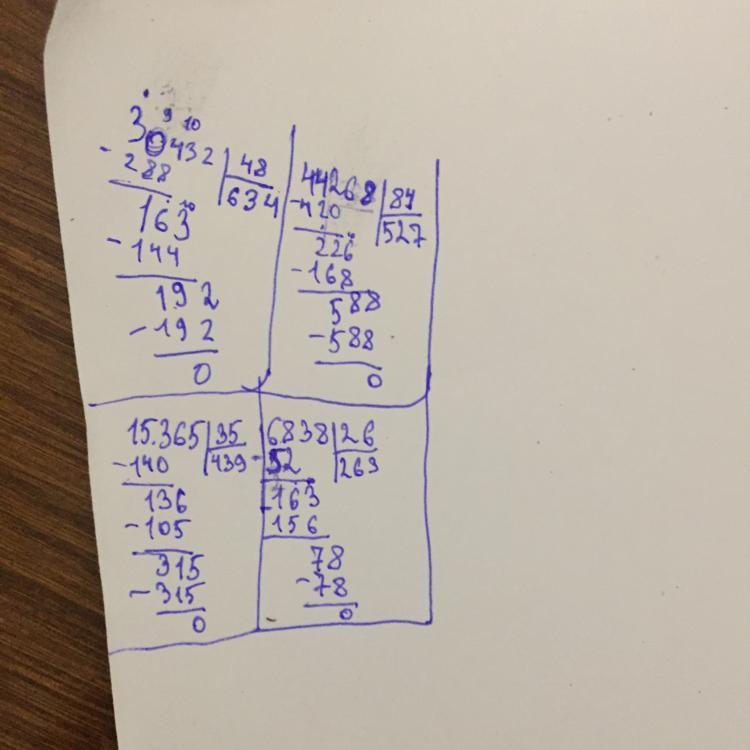 9 10
30432 48
- 288 634
163
- 144
192
- 192
0
44268 84
- 420 527
226
- 168
588
- 588
0
15.365 35
- 140 439
136
- 105
315
- 315
0
6838 26
- 52 263
163
- 156
78
- 78
0